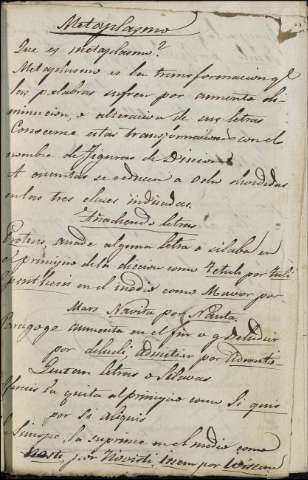 Metaplasmo
Que es metaplasmo?
Metaplasmo es la transformacion q.e
las palabras sufren por aumento di-
minucion, o alteracion de sus letras
Conocense estas transformaciones con el
nombre de Figuras de Diccion
A cuantas se reducen a ocho
en las tres clases indicadas.
Añadiendo letras
Protesis, añade alguna letra o silaba en
el principio de la diccion como Tetuli por Tuli
Epenthesis en el medio como Mavor por
Mars Navita por Nauta.
Paragoge aumenta en el fin
por admitier por
Quitan letras o silavas
la quita al principio como Si quis
por Si aliquis
Sincope, la suprime en el medio como
por Novisti,